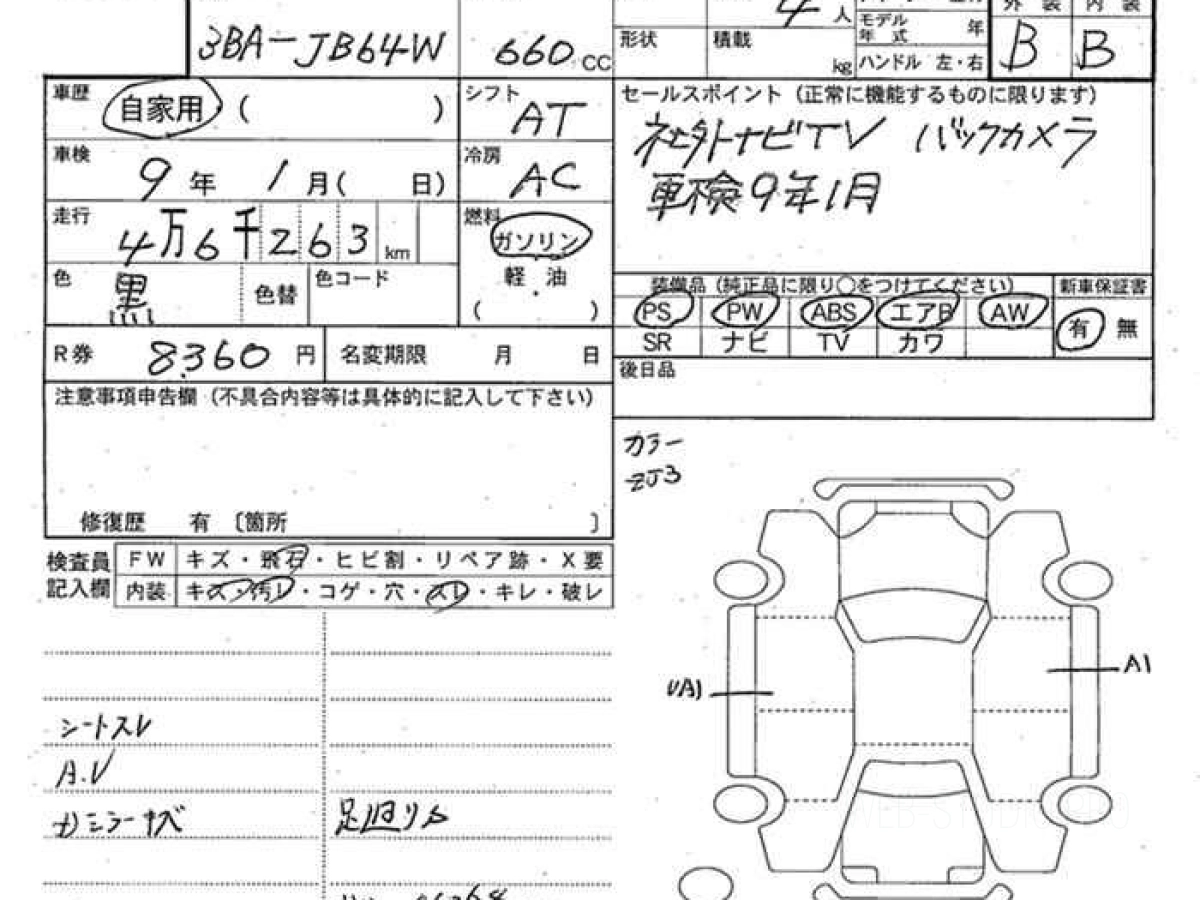 4人
外装 内装
3BA-JB64W 660CC
形状 積載 kg
モデル年式 年
ハンドル 左・右
B B
車歴 自家用 ( )
シフト AT
セールスポイント (正常に機能するものに限ります)
社外ナビTV バックカメラ
車検9年1月
車検 9年 1月( 日)
冷房 AC
走行 4万6千263km
燃料 ガソリン
軽油
( )
色 黒 色替 色コード
装備品 (純正品に限り○をつけてください) 新車保証書
PS PW ABS エアB AW 有 無
SR ナビ TV カワ
R券 8360円 名変期限 月 日
後日品
注意事項申告欄 (不具合内容等は具体的に記入して下さい)
カラー
ZJ3
修復歴 有 〔箇所 〕
検査員記入欄 FW キズ・飛石・ヒビ割・リペア跡・X要
内装 キズ・汚レ・コゲ・穴・スレ・キレ・破レ
A1
シートスレ
A.V
足廻りS